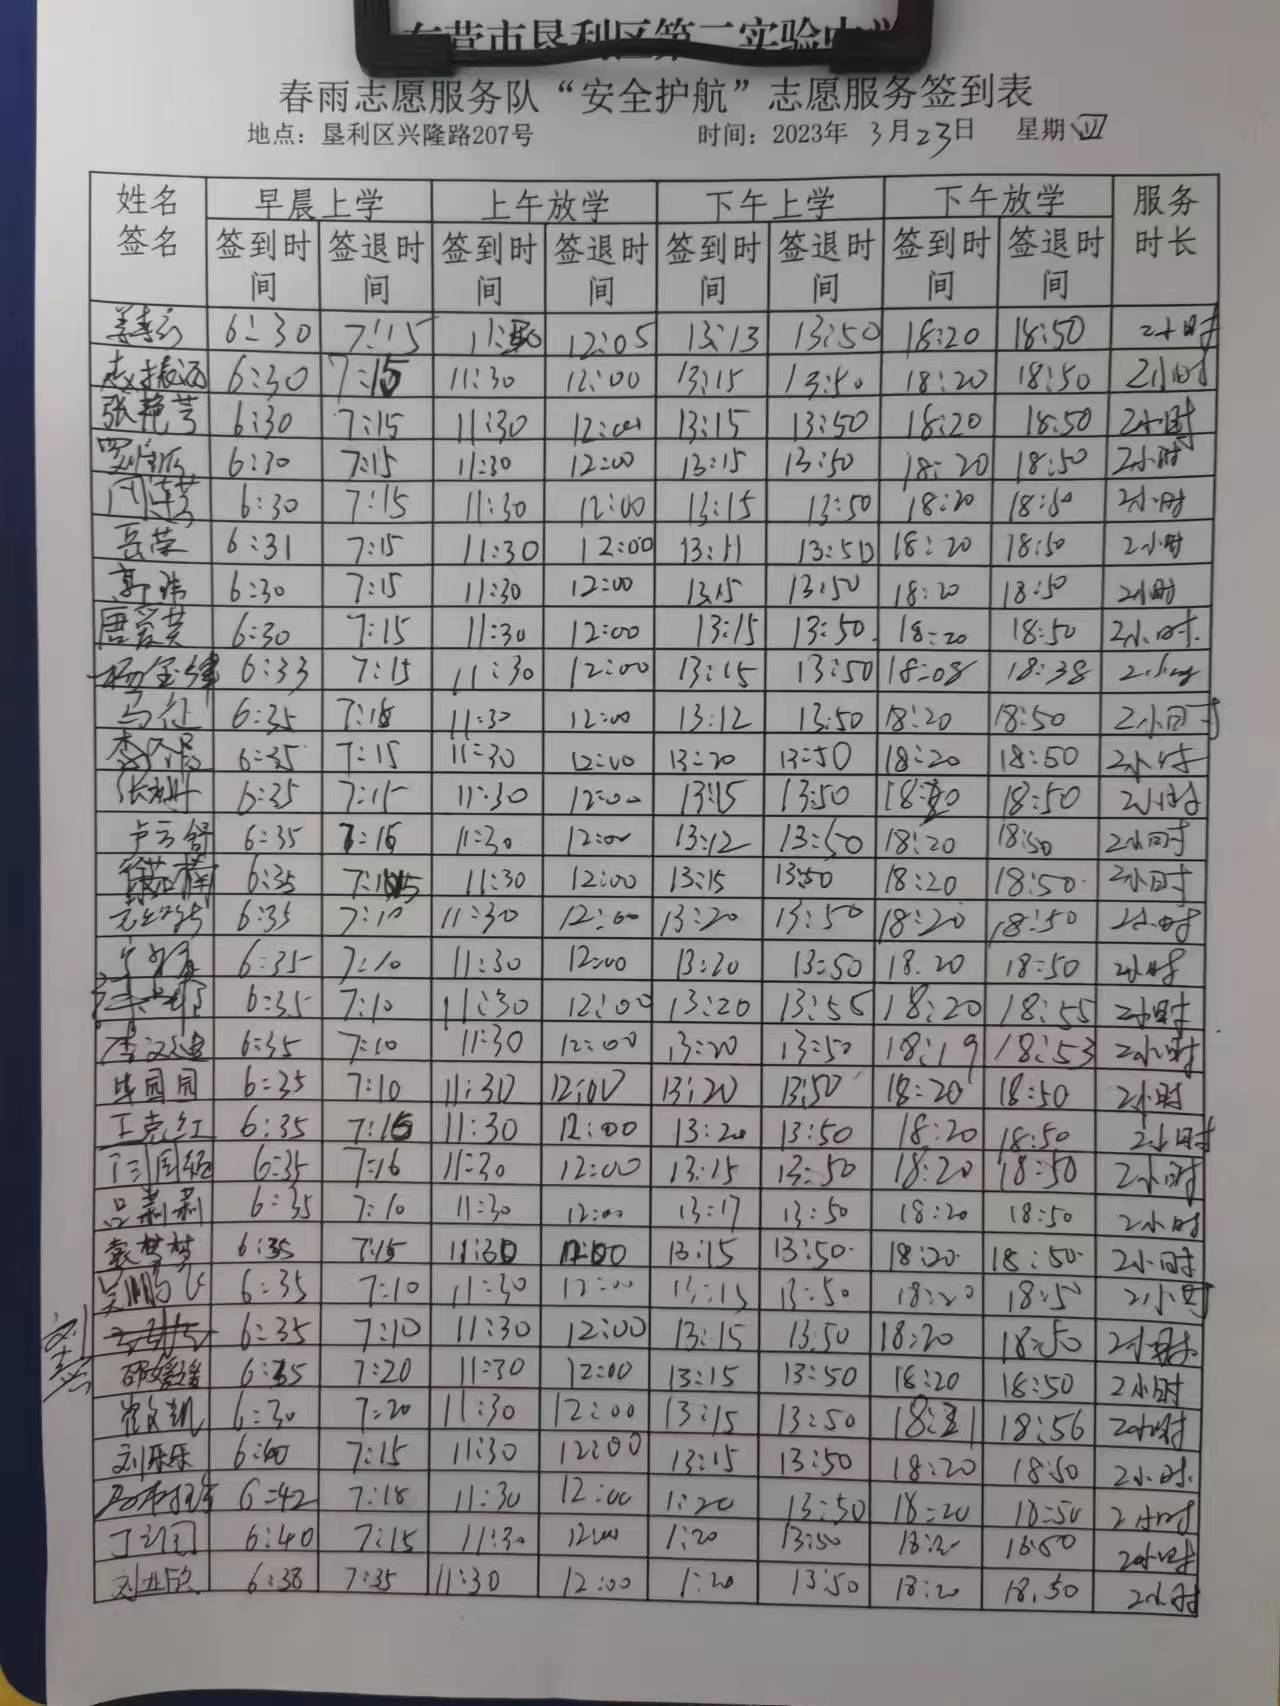 东营市垦利区第二实验中学
春雨志愿服务队“安全护航”志愿服务签到表
地点：垦利区兴隆路207号 时间：2023年 3月23日 星期四
姓名签名 早晨上学 上午放学 下午上学 下午放学 服务时长
签到时间 签退时间 签到时间 签退时间 签到时间 签退时间 签到时间 签退时间
6:30 7:15 12:05 13:13 13:50 18:20 18:50 2小时
6:30 7:15 11:30 12:00 13:15 13:50 18:20 18:50 2小时
张艳芳 6:30 7:15 11:30 12:00 13:15 13:50 18:20 18:50 2小时
6:30 7:15 11:30 12:00 13:15 13:50 18:20 18:50 2小时
6:30 7:15 11:30 12:00 13:15 13:50 18:20 18:50 2小时
岳荣 6:31 7:15 11:30 12:00 13:11 13:50 18:20 18:50 2小时
6:30 7:15 11:30 12:00 13:15 13:50 18:20 18:50 2小时
唐爱英 6:30 7:15 11:30 12:00 13:15 13:50 18:20 18:50 2小时
6:33 7:15 11:30 12:00 13:15 13:50 18:08 18:38 2小时
6:35 7:15 11:30 12:00 13:12 13:50 18:20 18:50 2小时
6:35 7:15 11:30 12:00 13:20 13:50 18:20 18:50 2小时
6:35 7:15 11:30 12:00 13:15 13:50 18:20 18:50 2小时
卢云舒 6:35 7:15 11:30 12:00 13:12 13:50 18:20 18:50 2小时
6:35 7:15 11:30 12:00 13:15 13:50 18:20 18:50 2小时
6:35 7:10 11:30 12:00 13:20 13:50 18:20 18:50 2小时
6:35 7:10 11:30 12:00 13:20 13:50 18.20 18:50 2小时
6:35 7:10 11:30 12:00 13:20 13:55 18:20 18:55 2小时
6:35 7:10 11:30 12:00 13:20 13:50 18:19 18:53 2小时
毕园园 6:35 7:10 11:30 12:00 13:20 13:50 18:20 18:50 2小时
王克红 6:35 7:15 11:30 12:00 13:20 13:50 18:20 18:50 2小时
6:35 7:16 11:30 12:00 13:15 13:50 18:20 18:50 2小时
吕莉莉 6:35 7:10 11:30 12:00 13:17 13:50 18:20 18:50 2小时
袁梦梦 6:35 7:15 11:30 12:00 13:15 13:50 18:20 18:50 2小时
吴鹏飞 6:35 7:10 11:30 12:00 13:15 13:50 18:20 18:50 2小时
6:35 7:10 11:30 12:00 13:15 13.50 18:20 18:50 2小时
邵媛媛 6:35 7:20 11:30 12:00 13:15 13:50 18:20 18:50 2小时
崔文凯 6:30 7:20 11:30 12:00 13:15 13:50 18:21 18:56 2小时
刘乐乐 6:40 7:15 11:30 12:00 13:15 13:50 18:20 18:50 2小时
6:42 7:18 11:30 12:00 1:20 13:50 18:20 18:50 2小时
6:40 7:15 11:30 12:00 1:20 13:50 2小时
6:38 7:35 11:30 12:00 1:20 13:50 18:20 18:50 2小时